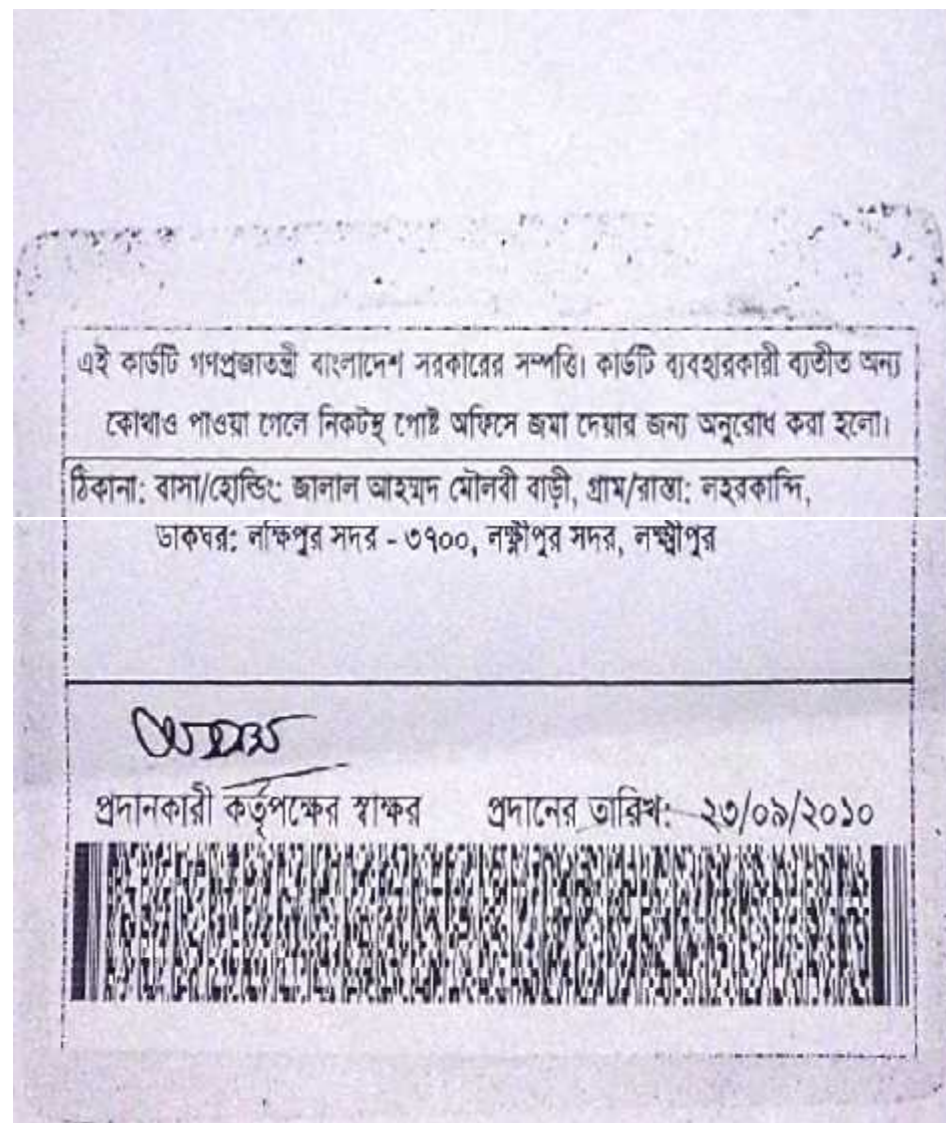 এই কার্ডটি গণপ্রজাতন্ত্রী বাংলাদেশ সরকারের সম্পত্তি। কার্ডটি ব্যবহারকারী ব্যতীত অন্য
কোথাও পাওয়া গেলে নিকটস্থ পোষ্ট অফিসে জমা দেয়ার জন্য অনুরোধ করা হলো।
ঠিকানা: বাসা/হোল্ডিং: জালাল আহম্মদ মৌলবী বাড়ী, গ্রাম/রাস্তা: লহরকান্দি,
ডাকঘর: লক্ষিপুর সদর - ৩৭০০, লক্ষ্মীপুর সদর, লক্ষ্মীপুর
প্রদানকারী কর্তৃপক্ষের স্বাক্ষর প্রদানের তারিখ: ২৩/০৯/২০১০